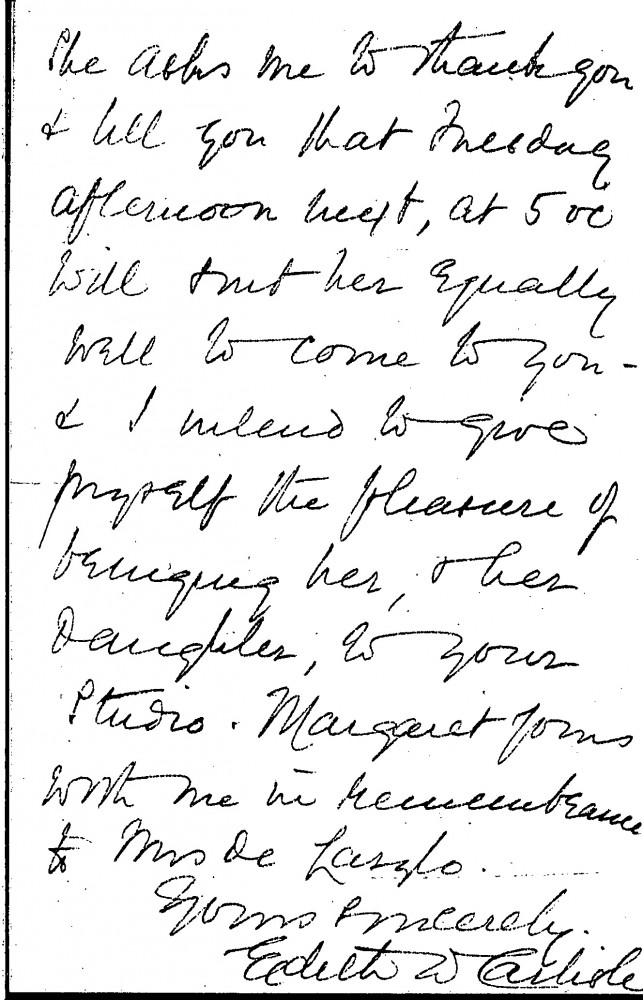 She asks me to thank you
& tell you that Tuesday
afternoon next, at 5 oc
will suit her equally
well to come to you -
& I intend to give
myself the pleasure of
bringing her, & her
Daughter, to your
Studio. Margaret joins
with me in remembrance
to Mrs de Laszlo.
Yours sincerely.
Edith W Carlisle